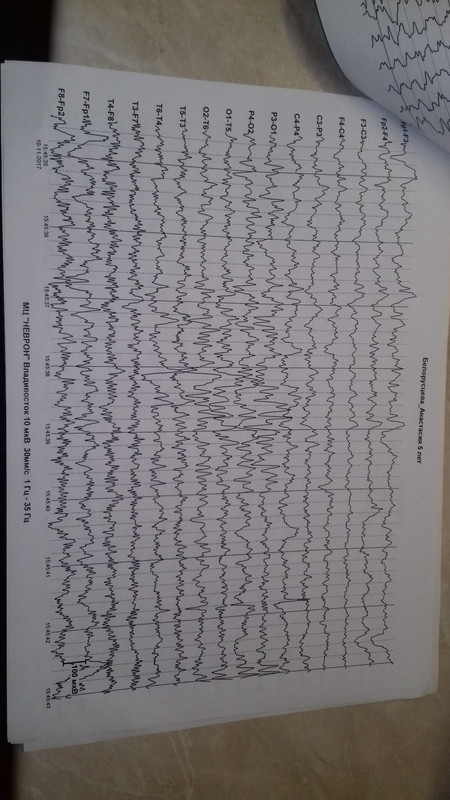 Белорусцева_Анастасия 5 лет
Fp2-F4
F3-C3
F4-C4
C3-P3
C4-P4
P3-O1
P4-O2
O1-T5
O2-T6
T5-T3
T6-T4
T3-F7
T4-F8
F7-Fp1
F8-Fp2
100 мкВ
15:45:35 15:45:36 15:45:37 15:45:38 15:45:39 15:45:40 15:45:41 15:45:42 15:45:43
10-11-2017
МЦ "НЕВРОН" Владивосток 10 мкВ 30мм/с 1 Гц - 35 Гц